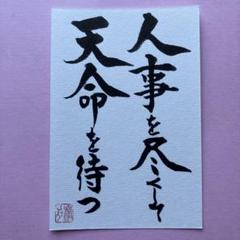 人事を尽くして
天命を待つ